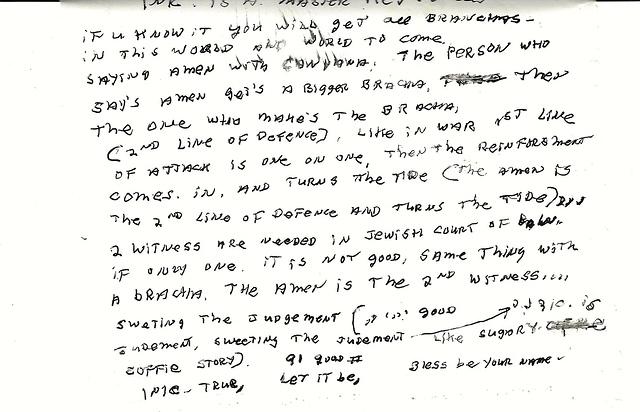 INK. IS A MASTER KEY
IF U KNOW IT YOU WILL GET ALL BRANCHAS -
IN THIS WORLD AND WORLD TO COME.
SAYING AMEN WITH THE PERSON WHO
SAY'S AMEN GET'S A BIGGER BRACHA, THEN
THE ONE WHO MAKE'S THE BRACHA,
(2ND LINE OF DEFENCE), LIKE IN WAR 1ST LINE
OF ATTACK IS ONE ON ONE, THEN THE REINFORSMENT
COMES. IN, AND TURNS THE TIDE (THE AMEN IS
THE 2ND LINE OF DEFENCE AND TURNS THE TIDE)
2 WITNESS ARE NEEDED IN JEWISH COURT OF
IF ONLY ONE. IT IS NOT GOOD, SAME THING WITH
A BRACHA. THE AMEN IS THE 2ND WITNESS....
SWETING THE JUDGEMENT ( GOOD IS
JUDGMENT, SWEETING THE JUDEMENT LIKE SUGARY
COFFIE STORY). 91 Bless be YOUR NAME -
TRUE, LET IT be,